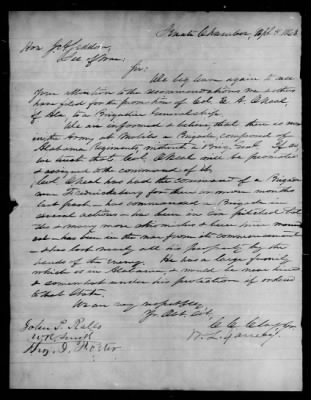 Senate Chamber, Apl 8, 1863
Hon J A Seddon
Sec of War
Sir:
We beg leave again to call
your attention to the recommendations we & others
have filed for the promotion of Col. E. A. O'Neal
of Ala, to a Brigadier Generalship.
We are informed & believe, that there is now
in the Army, at Mobile a Brigade, composed of
Alabama Regiments, without a Brig. Genl. If so,
we trust that Col. O'Neal will be promoted
& assigned to the command of it.
Col. O'Neal has had the command of a Brigade
near Fredericksburg for three or more months
last past - has commanded a Brigade in
several actions - has been in ten pitched bat
tles & many more skirmishes & been twice
- has been in the war from its commencement
- & has lost nearly all his property by the
hands of the enemy. He has a large family
which is in Alabama, & would be near them
& somewhat under his protection if ordered
to that State.
We are very respectfully,
Yr Obt. Svt,
C. C. Clay Jr
John P. Ralls
W. L. Yancey
W R Smith